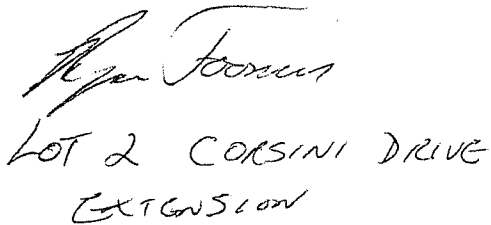 Ryan
LOT 2 CORSINI DRIVE
EXTENSION